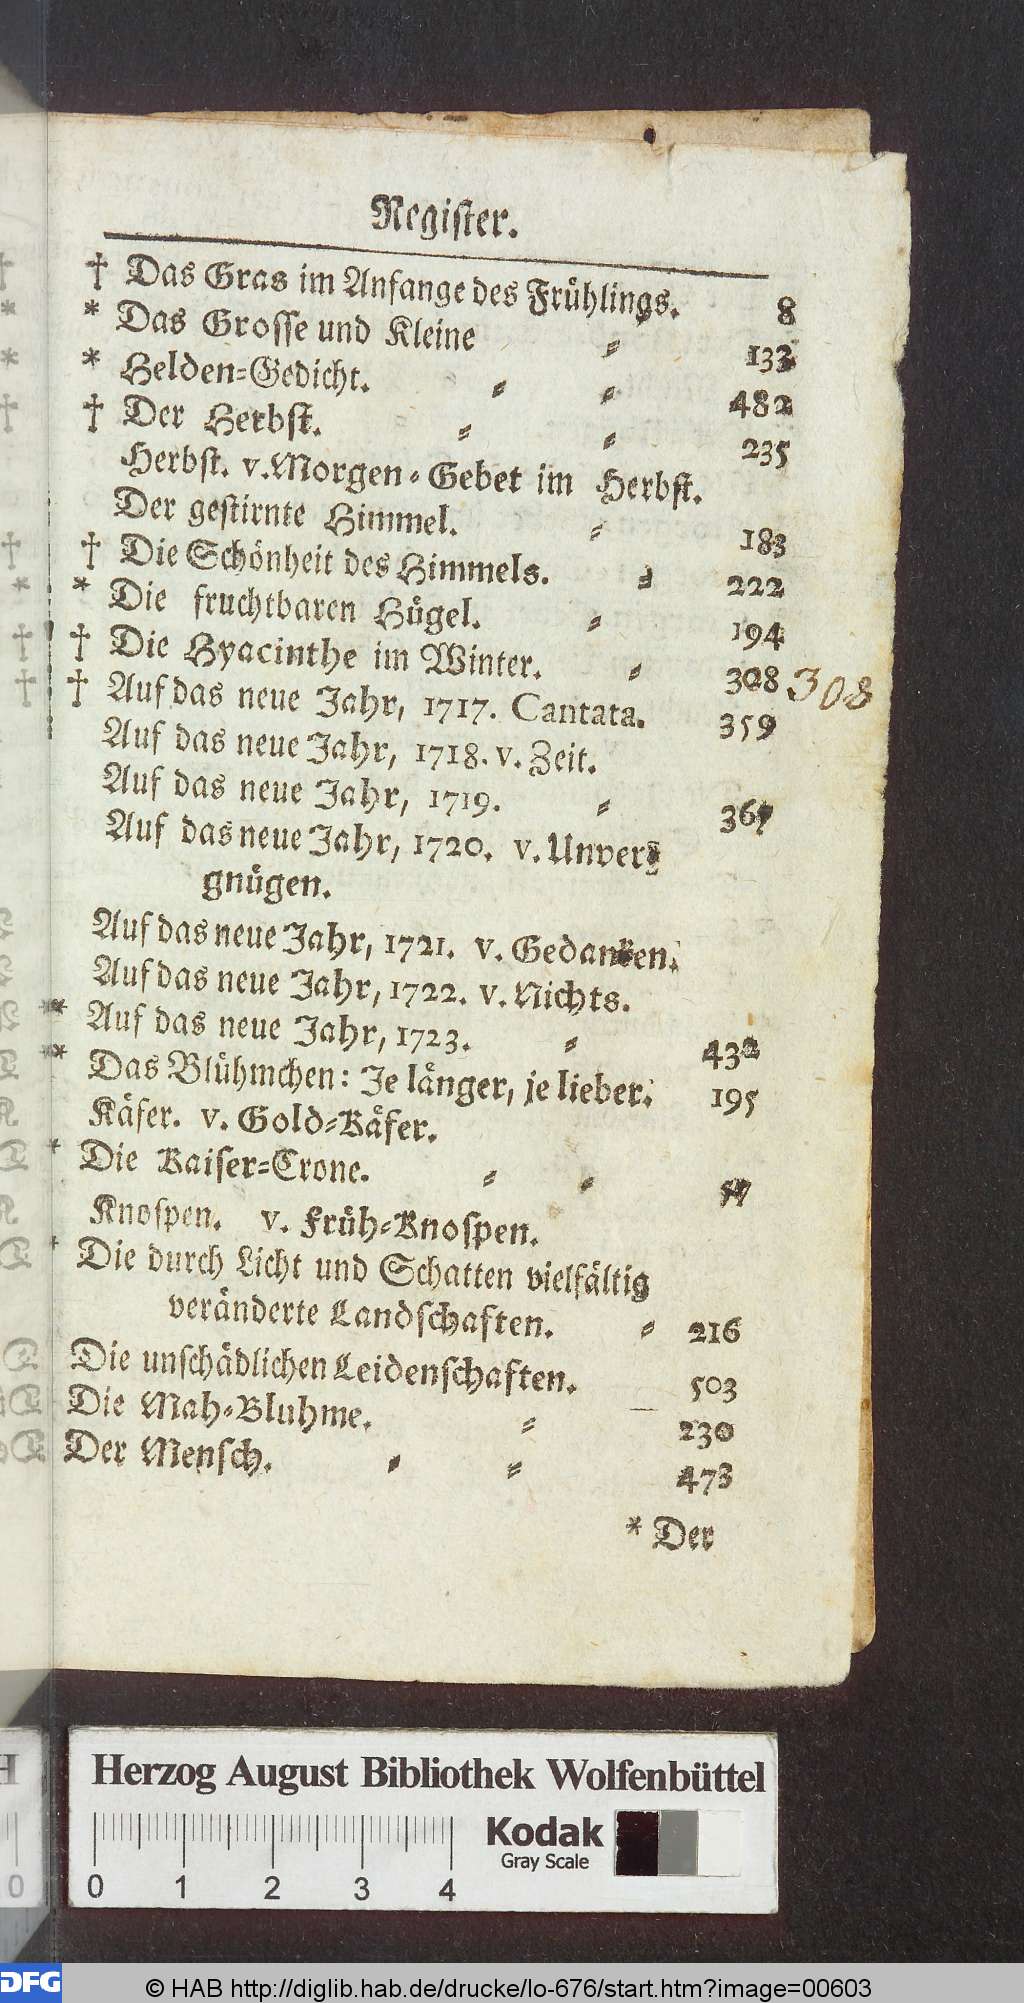 Register.
† Das Gras im Anfange des Frühlings. 8
* Das Grosse und Kleine = 133
* Helden=Gedicht. = = 482
† Der Herbst. = = 235
Herbst. v. Morgen=Gebet im Herbst.
Der gestirnte Himmel. = 183
† Die Schönheit des Himmels. = 222
* Die fruchtbaren Hügel. = 194
† Die Hyacinthe im Winter. = 308 308
† Auf das neue Jahr, 1717. Cantata. 359
Auf das neue Jahr, 1718. v. Zeit.
Auf das neue Jahr, 1719. = 367
Auf das neue Jahr, 1720. v. Unver=
gnügen.
Auf das neue Jahr, 1721. v. Gedancken.
Auf das neue Jahr, 1722. v. Nichts.
** Auf das neue Jahr, 1723. = 432
** Das Blühmchen: Je länger, je lieber. 195
Käfer. v. Gold=Käfer.
* Die Kaiser=Crone. = = 57
Knospen. v. Früh=Knospen.
* Die durch Licht und Schatten vielfältig
veränderte Landschaften. = 216
Die unschädlichen Leidenschaften. 503
Die Mah=Bluhme. = 230
Der Mensch. = = 473
* Der
Herzog August Bibliothek Wolfenbüttel
Kodak
Gray Scale
0 1 2 3 4
DFG
© HAB http://diglib.hab.de/drucke/lo-676/start.htm?image=00603